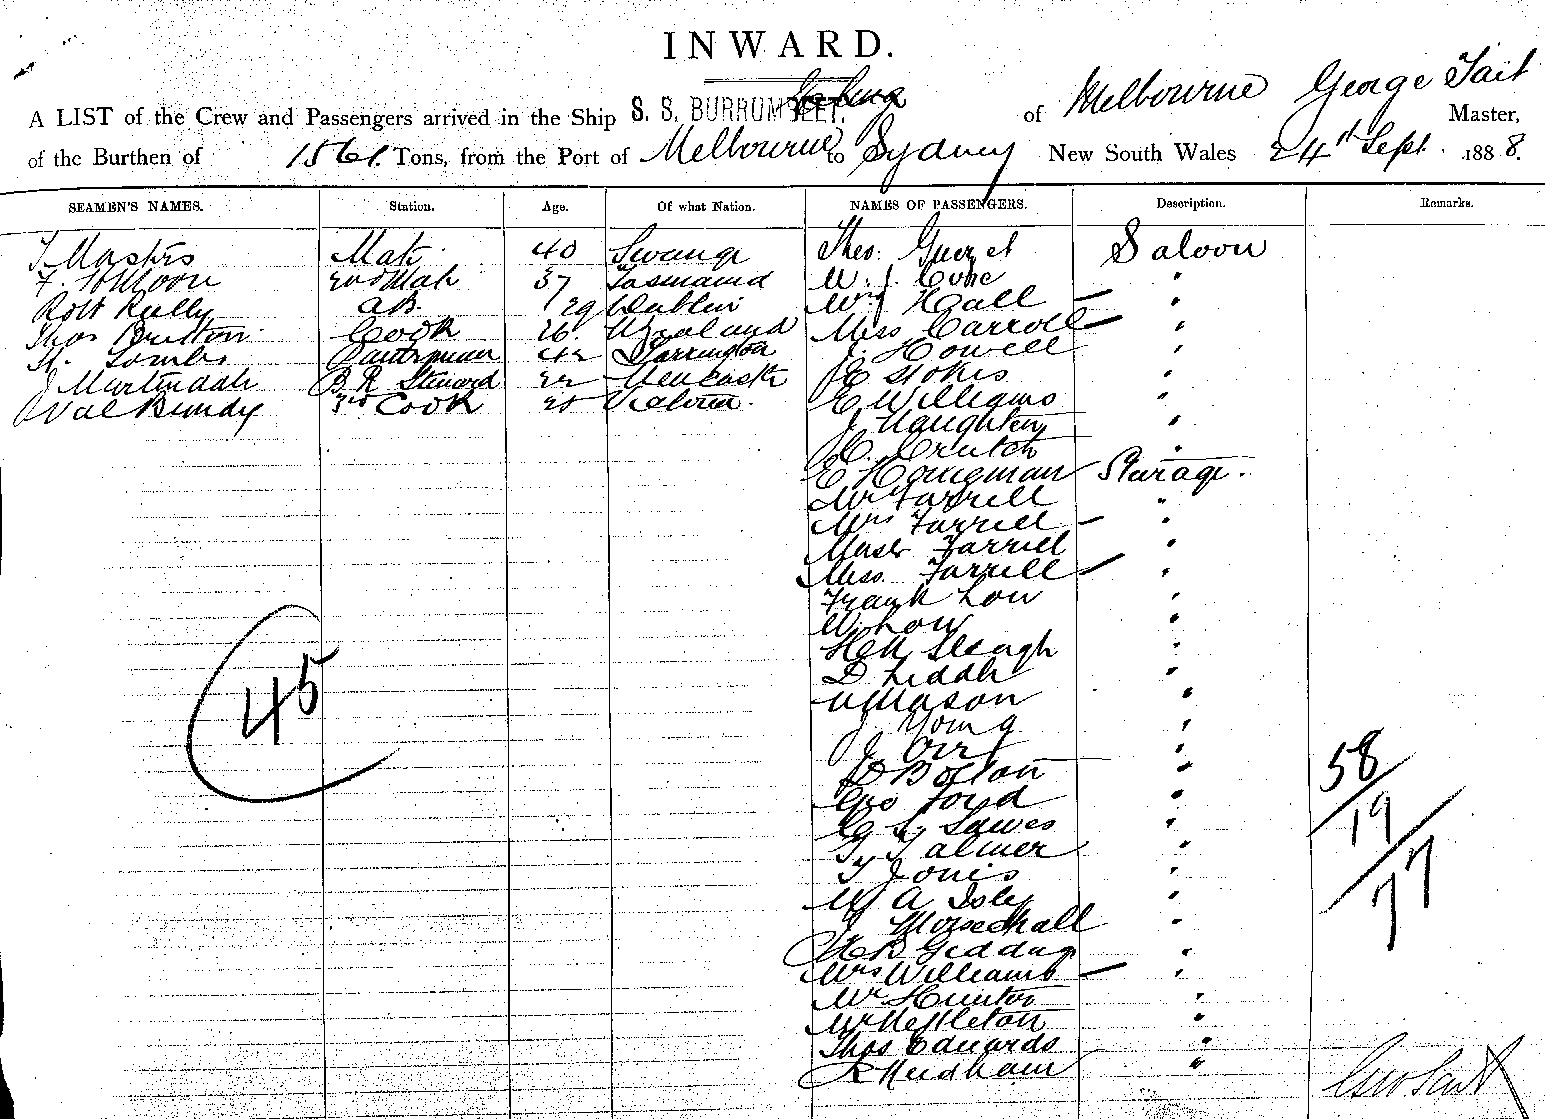 INWARD.
A LIST of the Crew and Passengers arrived in the Ship S. S. BURRUMBEET. of Melbourne George Tait Master,
of the Burthen of 1561. Tons, from the Port of Melbourne to Sydney New South Wales 24th Sept. 1888.
SEAMEN'S NAMES. Station. Age. Of what Nation. NAMES OF PASSENGERS. Description. Remarks.
T Masters Mate 40 Swanage Theo. Saloon
F. 2nd Mate 37 Tasmania W. J. "
Robt Kelly AB 29 Dublin Mrs Hall — "
Thos Cook 26. Miss Carroll — "
H. Lambs 42 J. Howell "
J Martindale B R Steward 22 Newcastle E Stokes "
Val Bundy 3rd Cook 20 E Williams "
J Naughten "
C. Crutch "
E Honeyman Sterage.
Mr Farrell "
Mrs Farrell — "
Master Farrell "
Miss Farrell — "
Frank Low "
W. Low "
"
D Liddle "
Mason "
J Young "
J Orr "
D Bolton "
Geo Ford "
C S. Sawes "
Palmer "
T Jones "
W A Isly "
J "
"
Mrs Williams — "
Mr Hunter "
Mr Nettleton "
Thos Edwards "
Needham "
45
58
19
77
Geo Tait